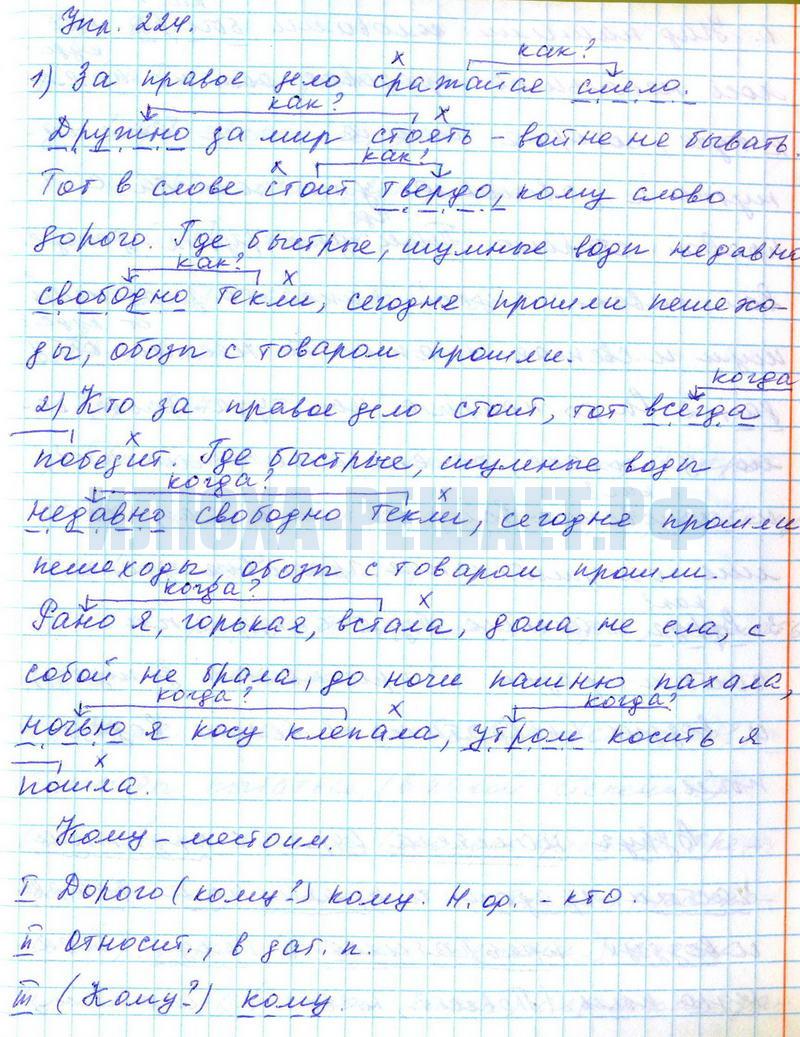 Упр. 224.
как?
1) За правое дело сражайся смело.
как?
Дружно за мир стоять – войне не бывать.
как?
Тот в слове стоит твердо, кому слово
дорого. Где быстрые, шумные воды недавно
как?
свободно текли, сегодня прошли пешехо-
ды, обозы с товаром прошли.
когда
2) Кто за правое дело стоит, тот всегда
победит. Где быстрые, шумные воды
когда?
недавно свободно текли, сегодня прошли
ИЛЮХА-РЕШАЕТ.РФ
пешеходы, обозы с товаром прошли.
когда?
Рано я, горькая, встала, дома не ела, с
собой не брала, до ночи пашню пахала,
когда? когда?
ночью я косу клепала, утром косить я
пошла.
Кому – местоим.
I Дорого (кому?) кому. Н.ф. – кто.
II Относит., в дат. п.
III (Кому?) кому.